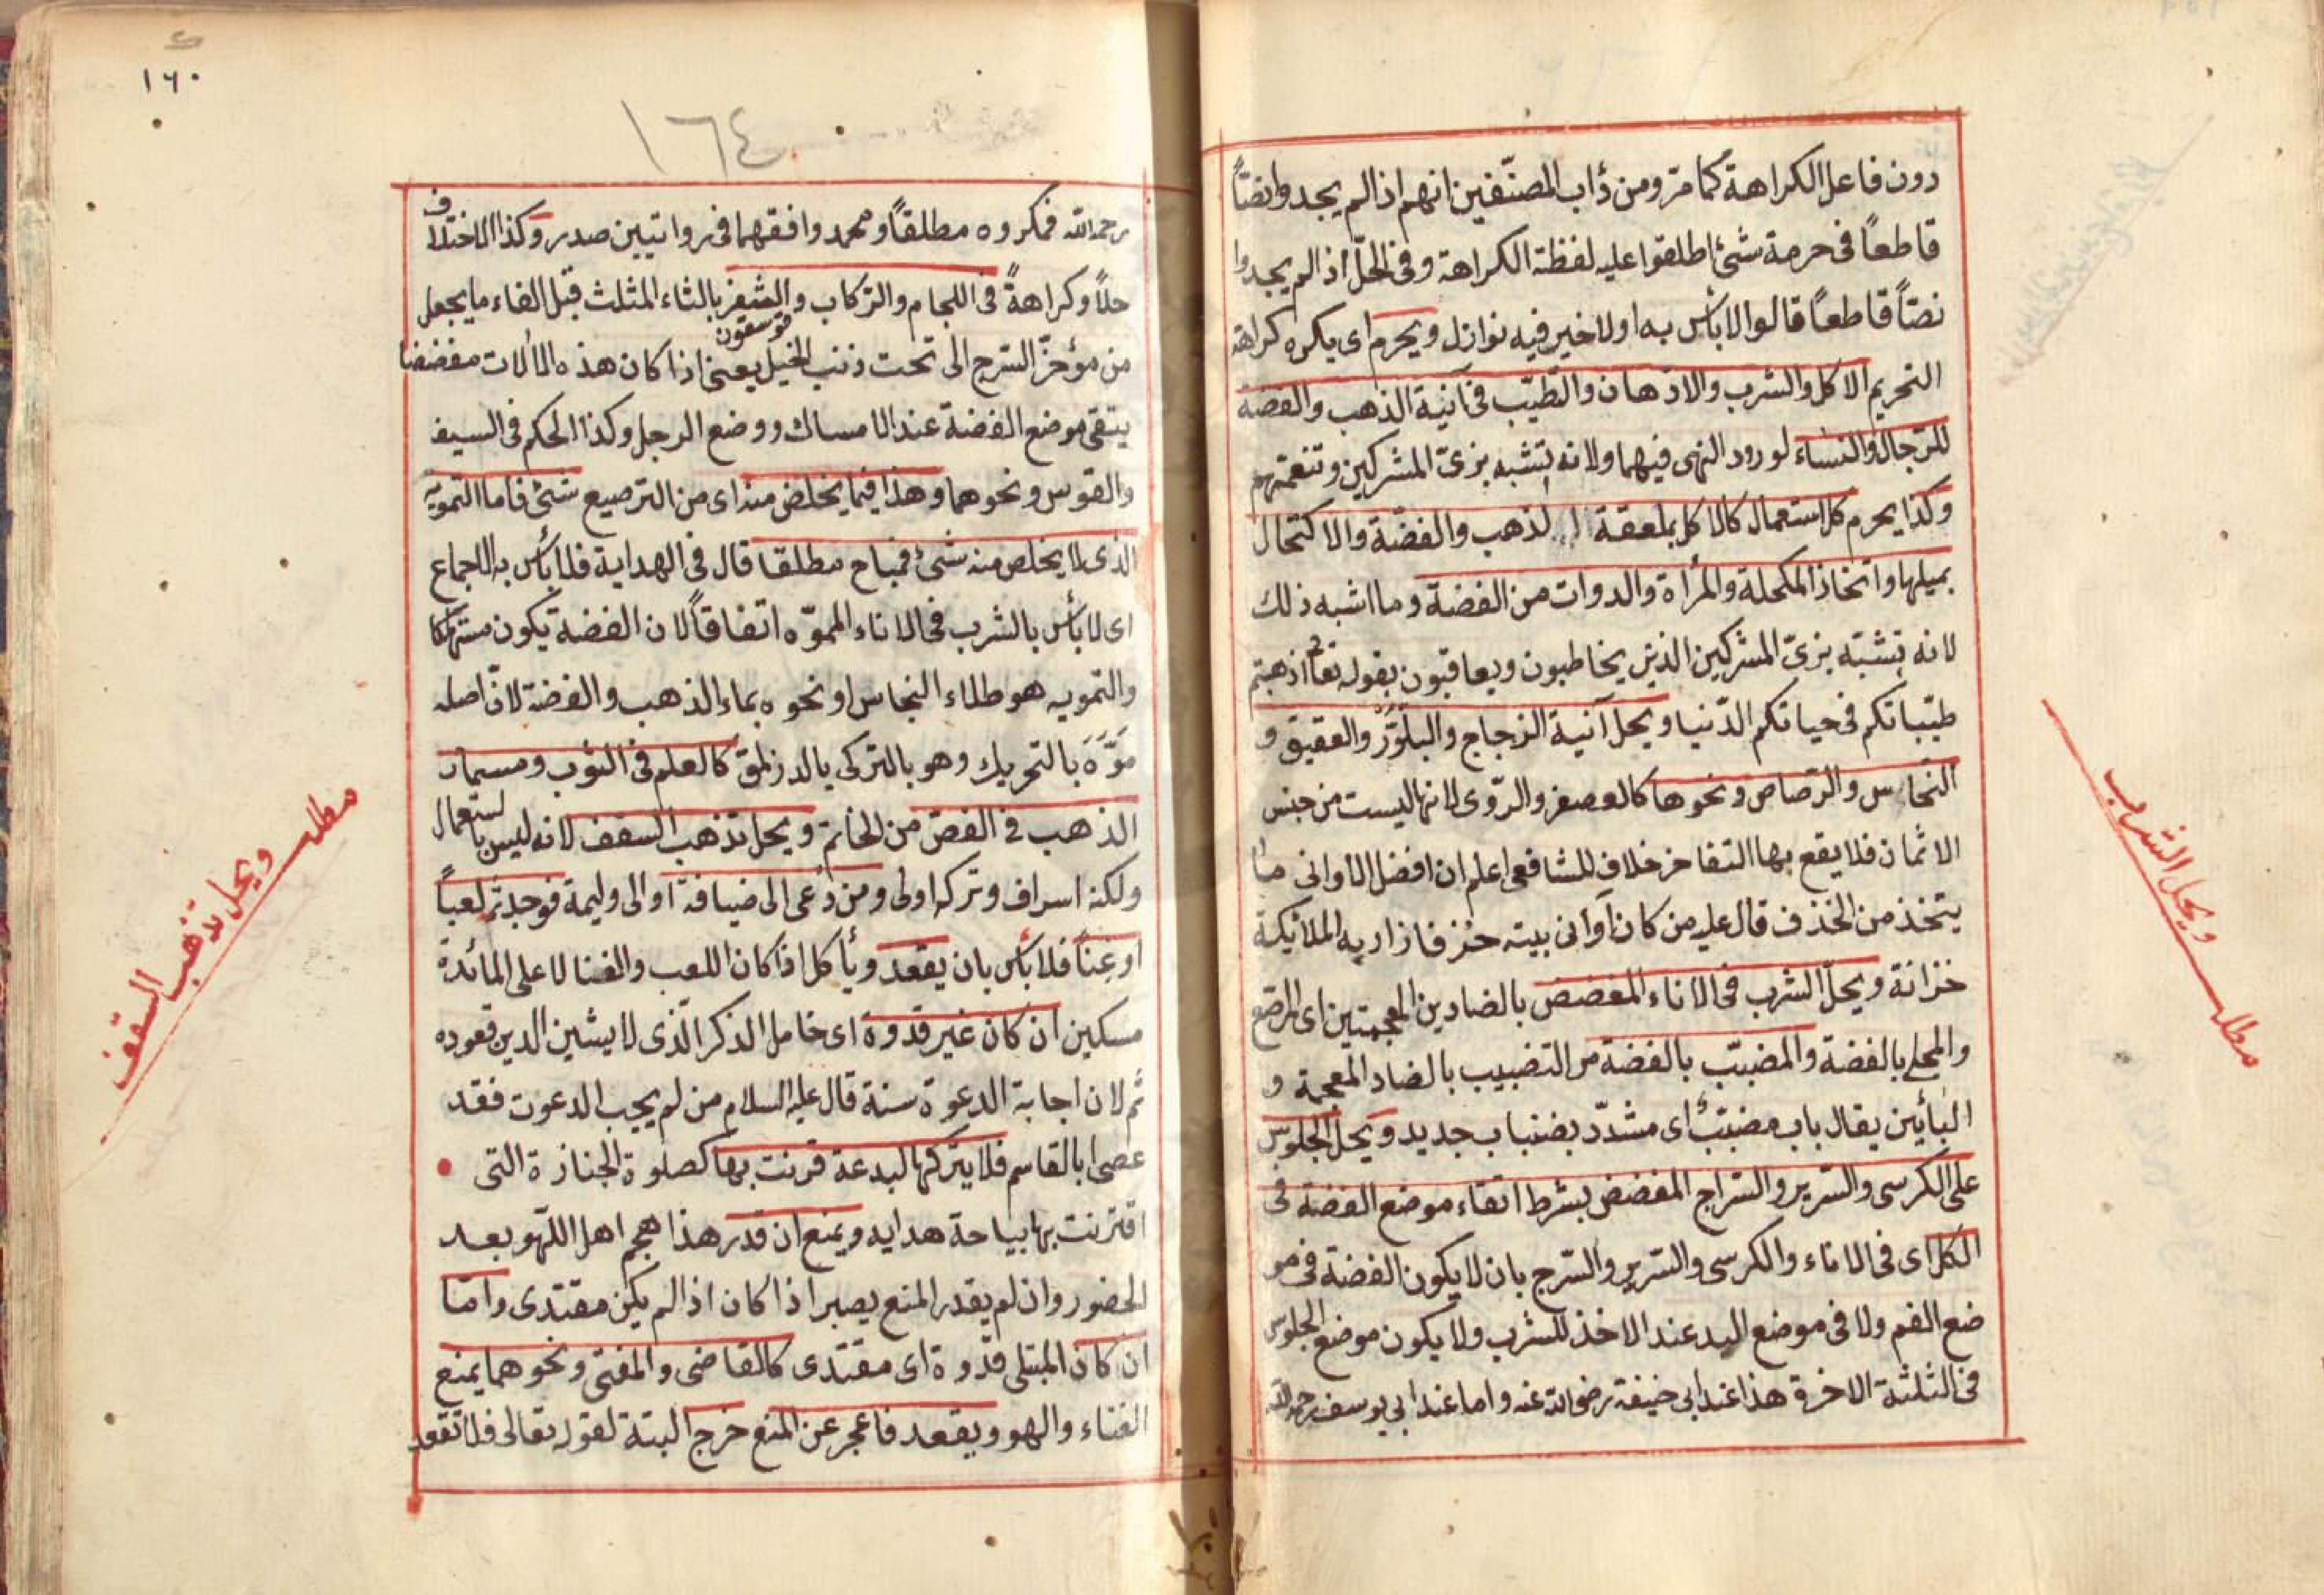 دون فاعل الكراهة كما مرّ ومن دأب المصنّفين انهم اذا لم يجدوا نصّاً
قاطعاً فى حرمة شئ اطلقوا عليه لفظة الكراهة وفى الحلّ اذا لم يجدوا
نصّاً قاطعاً قالوا لا بأس به او لا خير فيه نوازل ويحرم اى يكره كراهة
التحريم الاكل والشرب والادهان والتطيّب فى آنية الذهب والفضة
للرجال والنساء لورود النهى فيهما ولانه تشبه بزىّ المشركين وتنعمهم
وكذا يحرم كل استعمال كالاكل بملعقة الذهب والفضّة والاكتحال
بميلها واتخاذ المكحلة والمرأة والدوات من الفضة وما اشبه ذلك
لانه تشبّه بزىّ المشركين الذين يخاطبون ويعاقبون بقوله تعا اذهبتم
طيّباتكم فى حياتكم الدّنيا ويحل آنية الزجاج والبلّور والعقيق و
النحاس والرّصاص ونحوها كالصفر والرّوى لانها ليست من جنس
الاثمان فلا يقع بها التفاخر خلاف للشافعى اعلم ان افضل الاوانى ما
يتخذ من الخذف قال عليه من كان آوانى بيته خزفا زاريه الملائكة
خزانة ويحلّ الشرب فى الاناء المفضض بالضادين المعجمتين اى المرصّع
والمحلى بالفضة والمضبّب بالفضة من التضبيب بالضاد المعجمة و
البائين يقال باب مضبّب اى مشدّد بضباب جديد ويحل الجلوس
على الكرسى والسّرير والسّراج المفضض بشرط اتقاء موضع الفضة فى
الكل اى فى الاناء والكرسى والسّرير والسّرج بان لا يكون الفضة فى مو
ضع الفم ولا فى موضع اليد عند الاخذ للشرب ولا يكون موضع الجلوس
فى الثلثة الاخرة هذا عند ابى حنيفة رضى الله عنه واما عند ابى يوسف رحمه الله
مطلب ويحل الشرب
١٦٠
١٦٤
رحمه الله فمكروه مطلقاً ومحمد وافقهما فى رواتيين صدر وكذا الاختلاف
حلاً وكراهةً فى اللجام والرّكاب والثفر بالثاء المثلث قبل الفاء ما يجعل
قوسقون
من مؤخرّ السّرج الى تحت ذنب الخيل يعنى اذا كان هذه الالات مفضضا
يتقى موضع الفضة عند الامساك ووضع الرجل وكذا الحكم فى السيف
والقوس ونحوهما وهذا فيما يخلص منه اى من الترصيع شئ فاما التمويه
الذى لا يخلص منه شئ فمباح مطلقا قال فى الهداية فلا بأس به الاجماع
اى لا بأس بالشرب فى الاناء المموّه اتفاقاً لان الفضة يكون مستهلكا
والتمويه هو طلاء النحاس او نحوه بماء الذهب والفضة لانّ اصله
مَوَّهَ بالتحريك وهو بالتركى يالدزلمق كالعلم فى الثوب ومسمار
الذهب فى الفصّ من الخاتم ويحل تذهب السقف لانه ليس باستعمال
ولكنه اسراف وتركه اولى ومن دُعى الى ضيافة او الى وليمة فوجد ثم لعباً
او غنآً فلا بأس بان يقعد ويأكل اذا كان اللعب والغنا لا على المائدة
مسكين ان كان غير قدوة اى خامل الذكر الّذى لا يشين الدين قعوده
ثم لان اجابة الدعوة سنة قال عليه السلام من لم يجب الدعوت فقد
عصى ابا القاسم فلا يتركها لبدعة قرنت بها كصلوة الجنازة التى
اقترنت بها بياحة هدايه ويمنع ان قدر هذا هجم اهل اللّهو بعد
الحضور وان لم يقدر المنع يصبر اذا كان اذا لم يكن مقتدى وامّا
ان كان المبتلى قدّوة اى مقتدى كالقاضى والمفتى ونحوهما يمنع
الغناء والهو ويقعد فاعجر عن المنع خرج البتة لقوله تعالى فلا تقعد
مطلب ويحل تذهب السقف